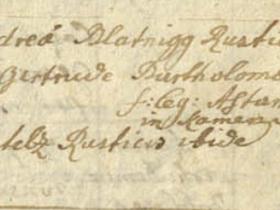 dreá Blatnigg Rustic
Gertrude Bartholom
f: leg: Astan
in Kamen
telz Rusticus ibide